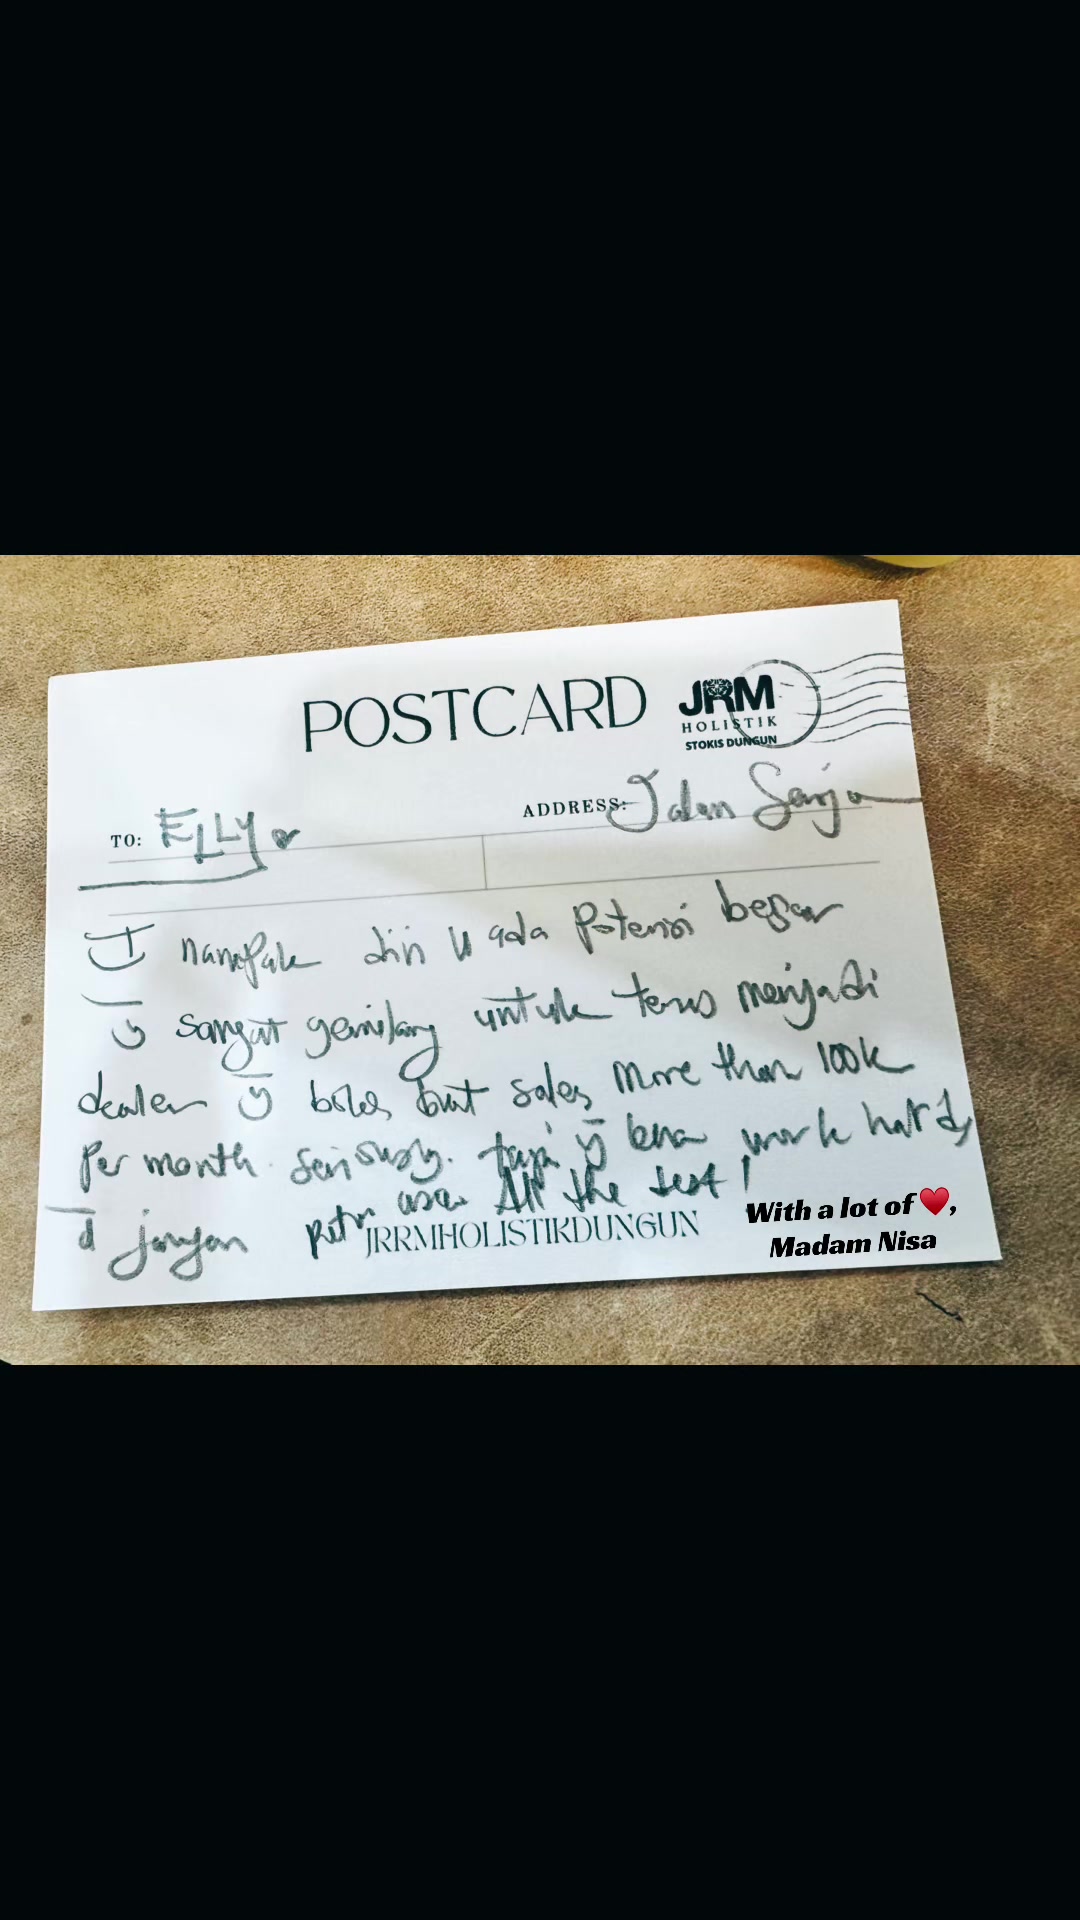 POSTCARD
JRM
HOLISTIK
STOKIS DUNGUN
TO: ELLY
ADDRESS: Jalan Senja
I nampak diri u ada potensi besar
sangat gemilang untuk terus menjadi
dealer boleh buat sales more than 100k
Per month. Seriously. tapi kena work hard
jangan putus asa. All the best!
JRRMHOLISTIKDUNGUN
With a lot of ♥️,
Madam Nisa